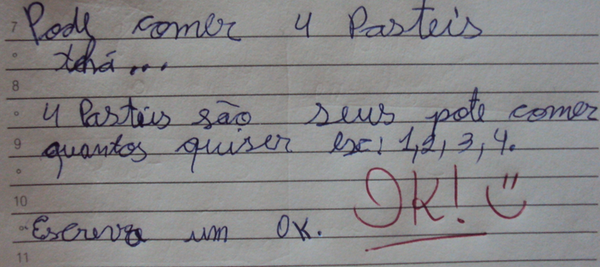 7 Pode comer 4 Pasteis
thá...
8
4 Pastéis são seus pote comer
9 quantos quiser ex: 1,2,3,4.
OK! ü
10
Escreva um OK.
11